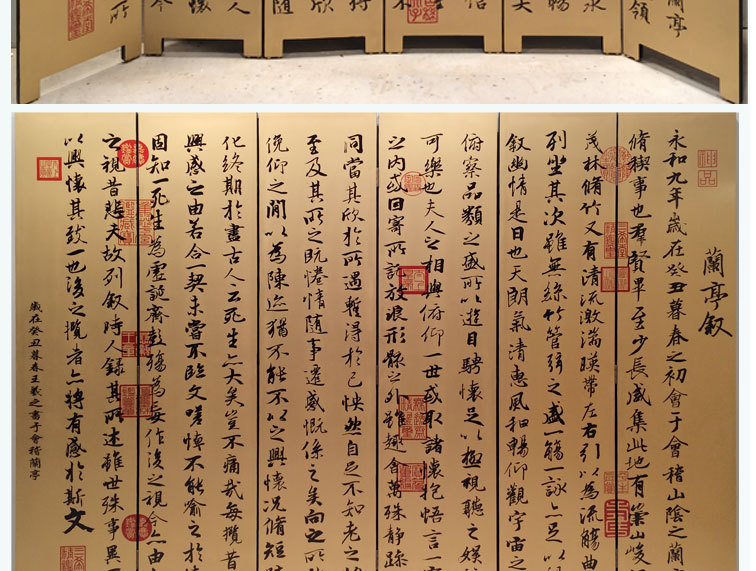 蘭亭
領
永
暢
夫
悟
得
欣
隨
人
懷
今
所
神品
蘭亭叙
永和九年歲在癸丑暮春之初會于會稽山陰之蘭亭
脩稧事也羣賢畢至少長咸集此地有崇山峻
茂林脩竹又有清流激湍暎帶左右引以為流觴曲
列坐其次雖無絲竹管弦之盛一觴一詠亦足以
叙幽情是日也天朗氣清惠風和暢仰觀宇宙之
俯察品類之盛所以遊目騁懷足以極視聽之娛
可樂也夫人之相與俯仰一世或取諸懷抱悟言一
之内或因寄所託放浪形骸之外雖趣舍萬殊靜躁
同當其欣於所遇暫得於己怏然自足不知老之
至及其所之既惓情隨事遷感慨係之矣向之所
俛仰之間以為陳迹猶不能不以之興懷況脩短
化終期於盡古人云死生亦大矣豈不痛哉每攬昔
興感之由若合一契未嘗不臨文嗟悼不能喻之於
固知一死生為虛誕齊彭殤為妄作後之視今亦由
之視昔悲夫故列叙時人錄其所述雖世殊事異
以興懷其致一也後之攬者亦將有感於斯文
歲在癸丑暮春王羲之書于會稽蘭亭